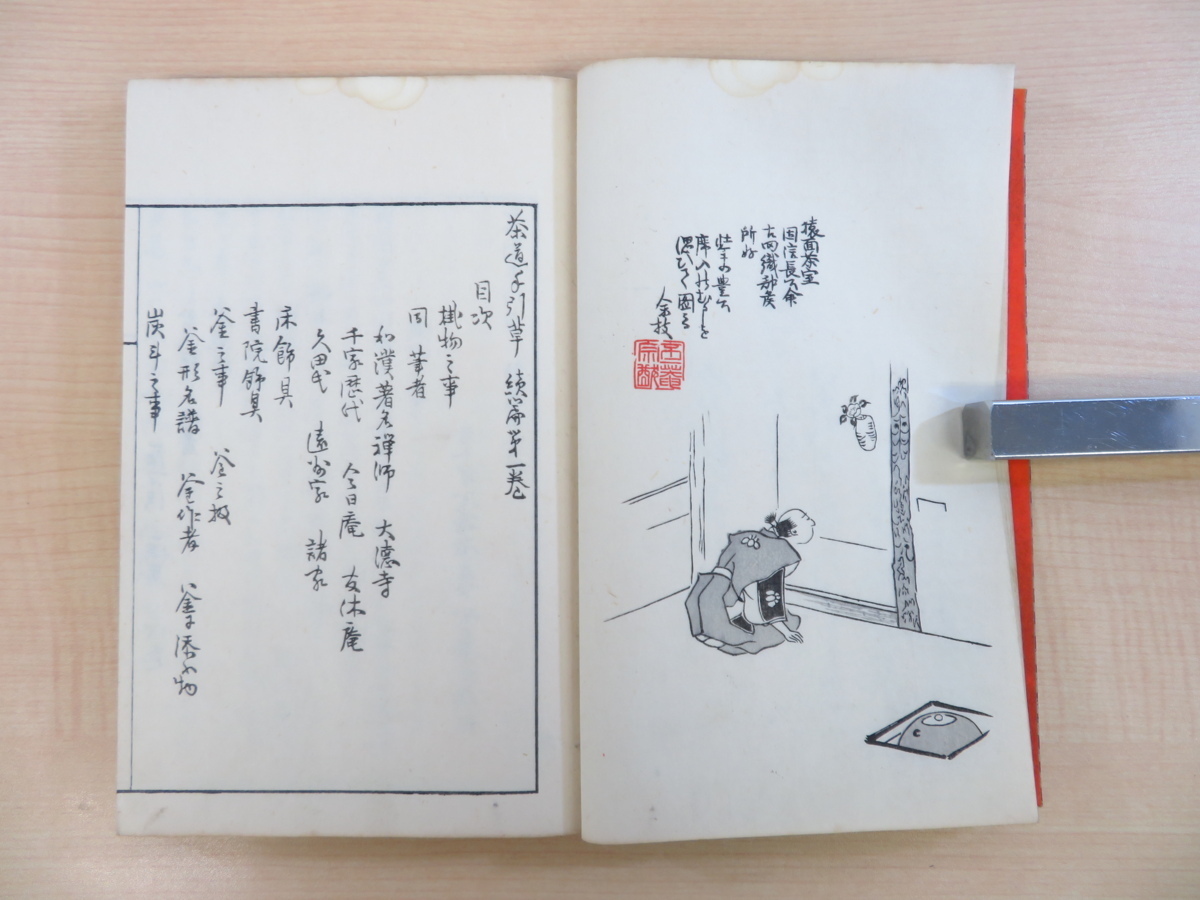 猿面茶室
因信長公命
古田織部侯
所好
壮年の豊公
席入のむかしを
偲びて図す
余技
茶道手引草 續篇第一巻
目次
掛物之事
同 筆者
和漢著名禅師 大徳寺
千家歴代 今日庵 友休庵
久田氏 遠州家 諸家
床飾具
書院飾具
釜之事 釜之扱
釜形名譜 釜作者 釜添小物
炭斗之事